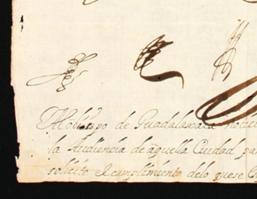 Al Obispo de Guadalaxara
la Audiencia de aquella Ciudad
solicite el cumplimiento delo que se